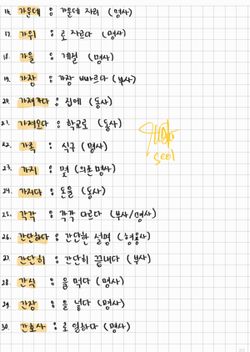 16. 가운데 : 가운데 자리 (명사)
17. 가위 : 로 자르다 (명사)
18. 가을 : 계절 (명사)
19. 가장 : 가장 빠르다 (부사)
20. 가져가다 : 집에 (동사)
21. 가져오다 : 학교로 (동사)
22. 가족 : 식구 (명사)
23. 가지 : 몇 (의존명사)
24. 가지다 : 돈을 (동사)
25. 각각 : 각각 다르다 (부사/명사)
26. 간단하다 : 간단한 설명 (형용사)
27. 간단히 : 간단히 끝내다 (부사)
28. 간식 : 을 먹다 (명사)
29. 간장 : 을 넣다 (명사)
30. 간호사 : 로 일하다 (명사)